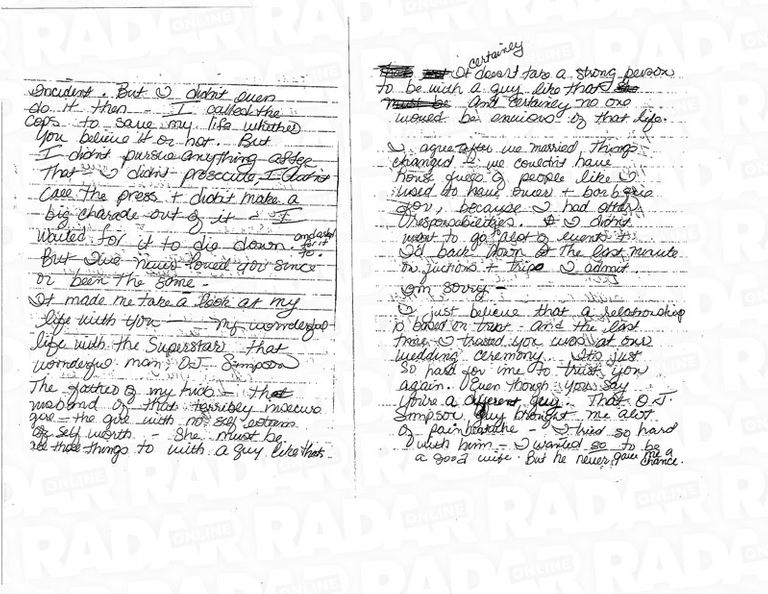 Incident. But I didn't even
do it then — I called the
cops to save my life whether
you believe it or not. But
I didn't pursue anything after
that - I didn't prosecute, I didn't
call the press + didn't make a
big charade out of it - I
waited for it to die down and asked for it to.
But I've never loved you since
or been the same -
It made me take a look at my
life with you — my wonderful
life with the superstar that
wonderful man OJ Simpson
The father of my kids - that
husband of that terribly insecure
girl - the girl with no self esteem
of self worth - She must be
things to with a guy like that.
It certainly doesn't take a strong person
to be with a guy like that
and certainly no one
would be envious of that life.
I agree after we married things
changed - we couldn't have
house fulls of people like I
used to have over + barbque
for, because I had other
responsibilities. I didn't
want to go alot of events +
I'd back down at the last minute
on fuctions + trips I admit.
Im sorry -
I just believe that a relationship
is based on trust - and the last
time I trusted you was at our
wedding ceremony. Its just
so hard for me to trust you
again. Even though you say
you're a different guy. That O.J.
Simpson guy brought me alot
of pain heatache - I tried so hard
with him - I wanted so to be
a good wife. But he never gave me a chance.
RADAR ONLINE